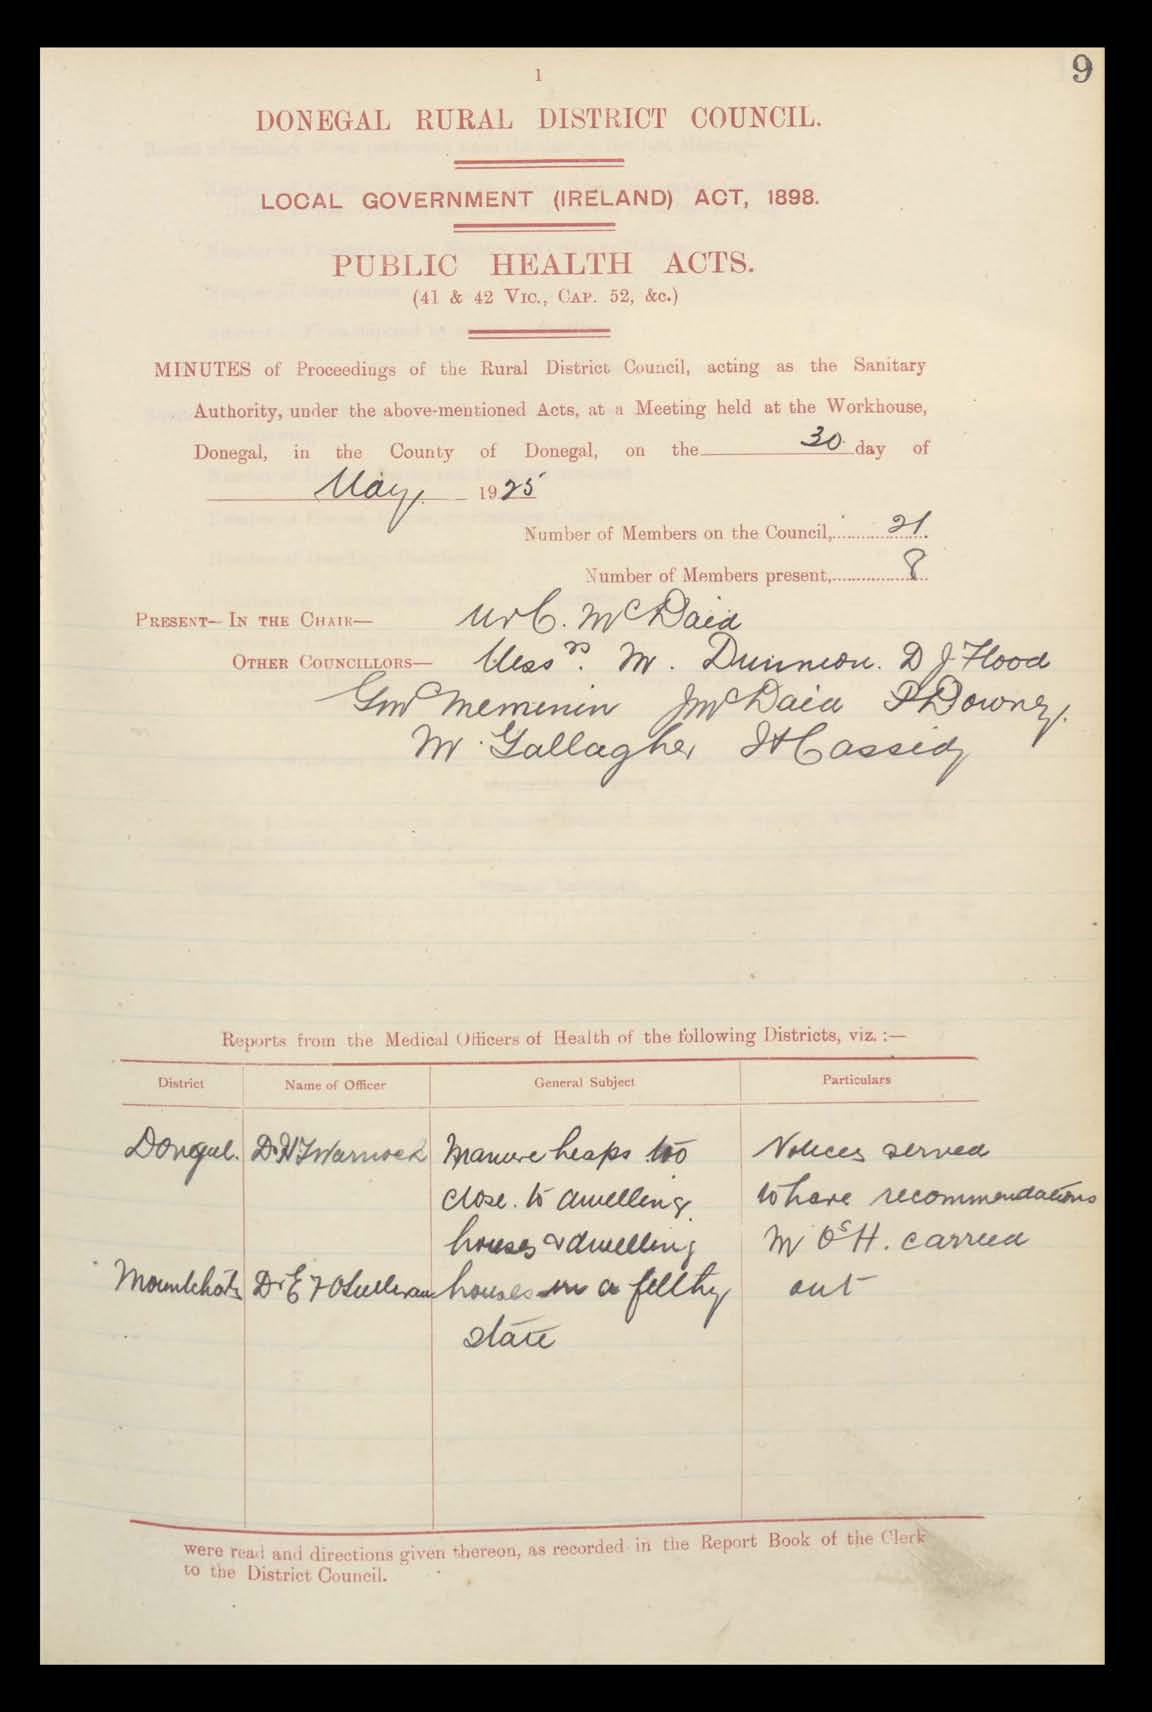 1
9
DONEGAL RURAL DISTRICT COUNCIL.
LOCAL GOVERNMENT (IRELAND) ACT, 1898.
PUBLIC HEALTH ACTS.
(41 & 42 VIC., CAP. 52, &c.)
MINUTES of Proceedings of the Rural District Council, acting as the Sanitary
Authority, under the above-mentioned Acts, at a Meeting held at the Workhouse,
Donegal, in the County of Donegal, on the 30 day of
May 1925
Number of Members on the Council, 21.
Number of Members present, 8
PRESENT— IN THE CHAIR— Mr C. McDaid
OTHER COUNCILLORS— Messrs. M. Dunnion. D J Flood
McMenimin J McDaid P Downey.
M. Gallagher Cassidy
Reports from the Medical Officers of Health of the following Districts, viz. :—
District Name of Officer General Subject Particulars
Donegal. Dr Warnock Manure heaps too Notices served
close. to dwelling to have recommendations
houses & dwelling M Os H. carried
Mountchas Dr E F OSullivan houses in a filthy out
state
were read and directions given thereon, as recorded in the Report Book of the Clerk
to the District Council.